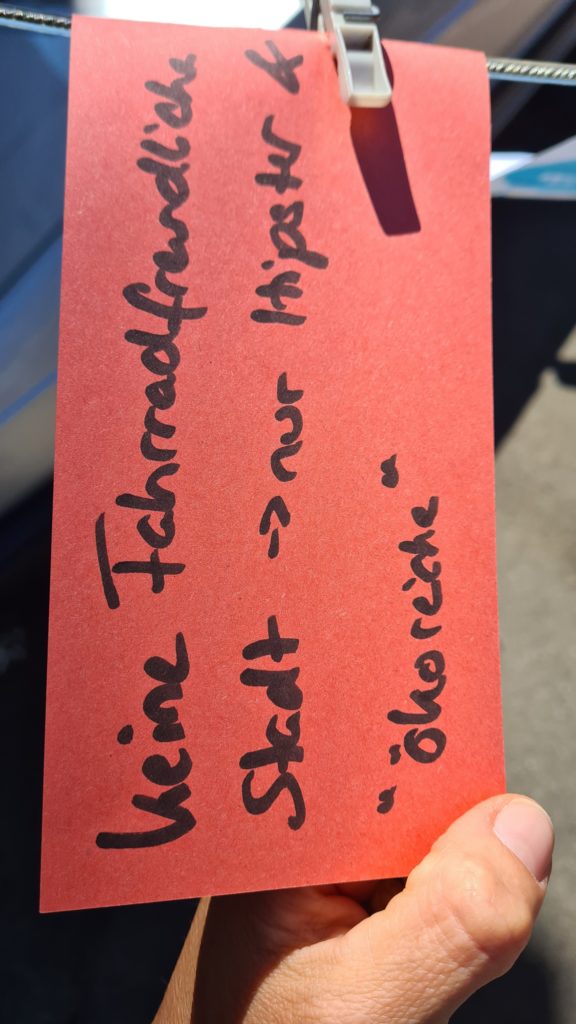 Keine Fahrradfreundliche
Stadt → nur Hipster &
"Ökoreiche"